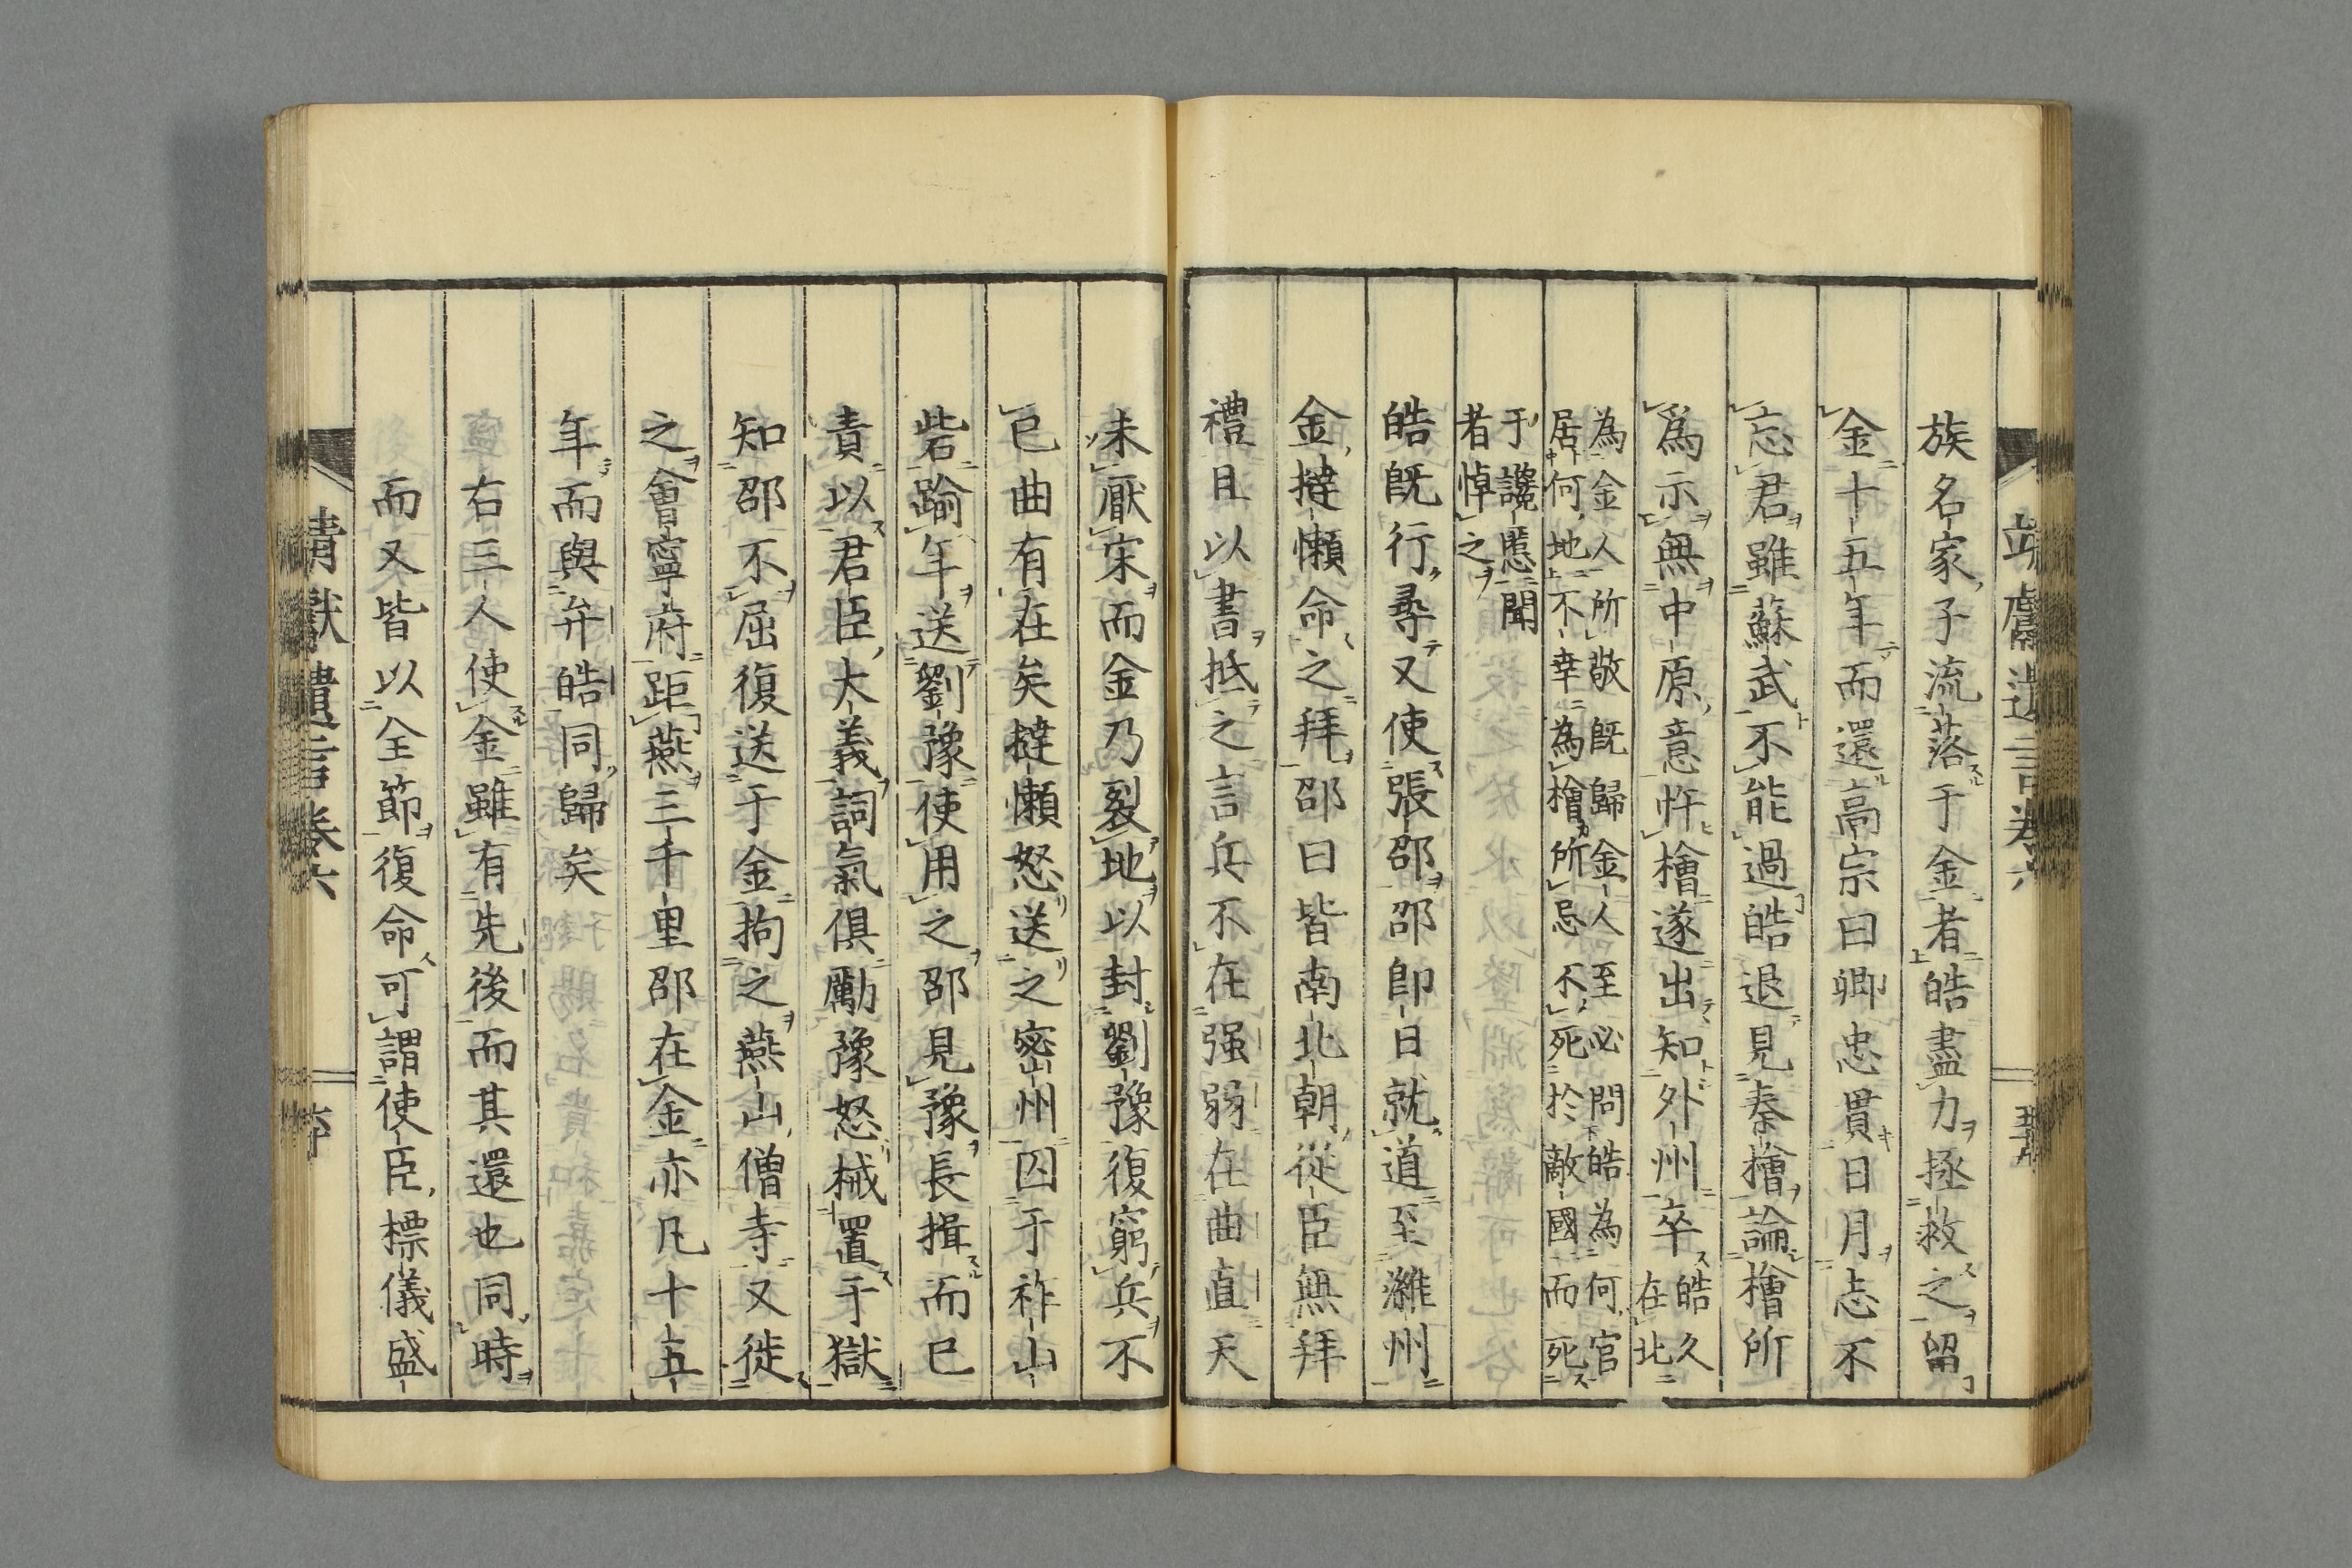 族名家子流落于金者皓盡力拯救之留
金十五年而還高宗曰卿忠貫日月志不
忘君雖蘇武不能過皓退見秦檜論檜所
爲示無中原意忤檜遂出知外州卒皓久在北
為金人所敬既歸金人至必問皓為何官
居何地不幸為檜所忌不死於敵國而死
于讒慝聞
者悼之
皓既行尋又使張邵邵即日就道至濰州
金撻懶命之拜邵曰皆南北朝從臣無拜
禮且以書抵之言兵不在强弱在曲直天
未厭宋而金乃裂地以封劉豫復窮兵不
已曲有在矣撻懶怒送之密州囚于祚山
砦踰年送劉豫使用之邵見豫長揖而已
責以君臣大義詞氣俱勵豫怒械置于獄
知邵不屈復送于金拘之燕山僧寺又徙
之會寧府距燕三千里邵在金亦凡十五
年而與弁皓同歸矣
右三人使金雖有先後而其還也同時
而又皆以全節復命可謂使臣標儀盛
靖獻遺言卷六